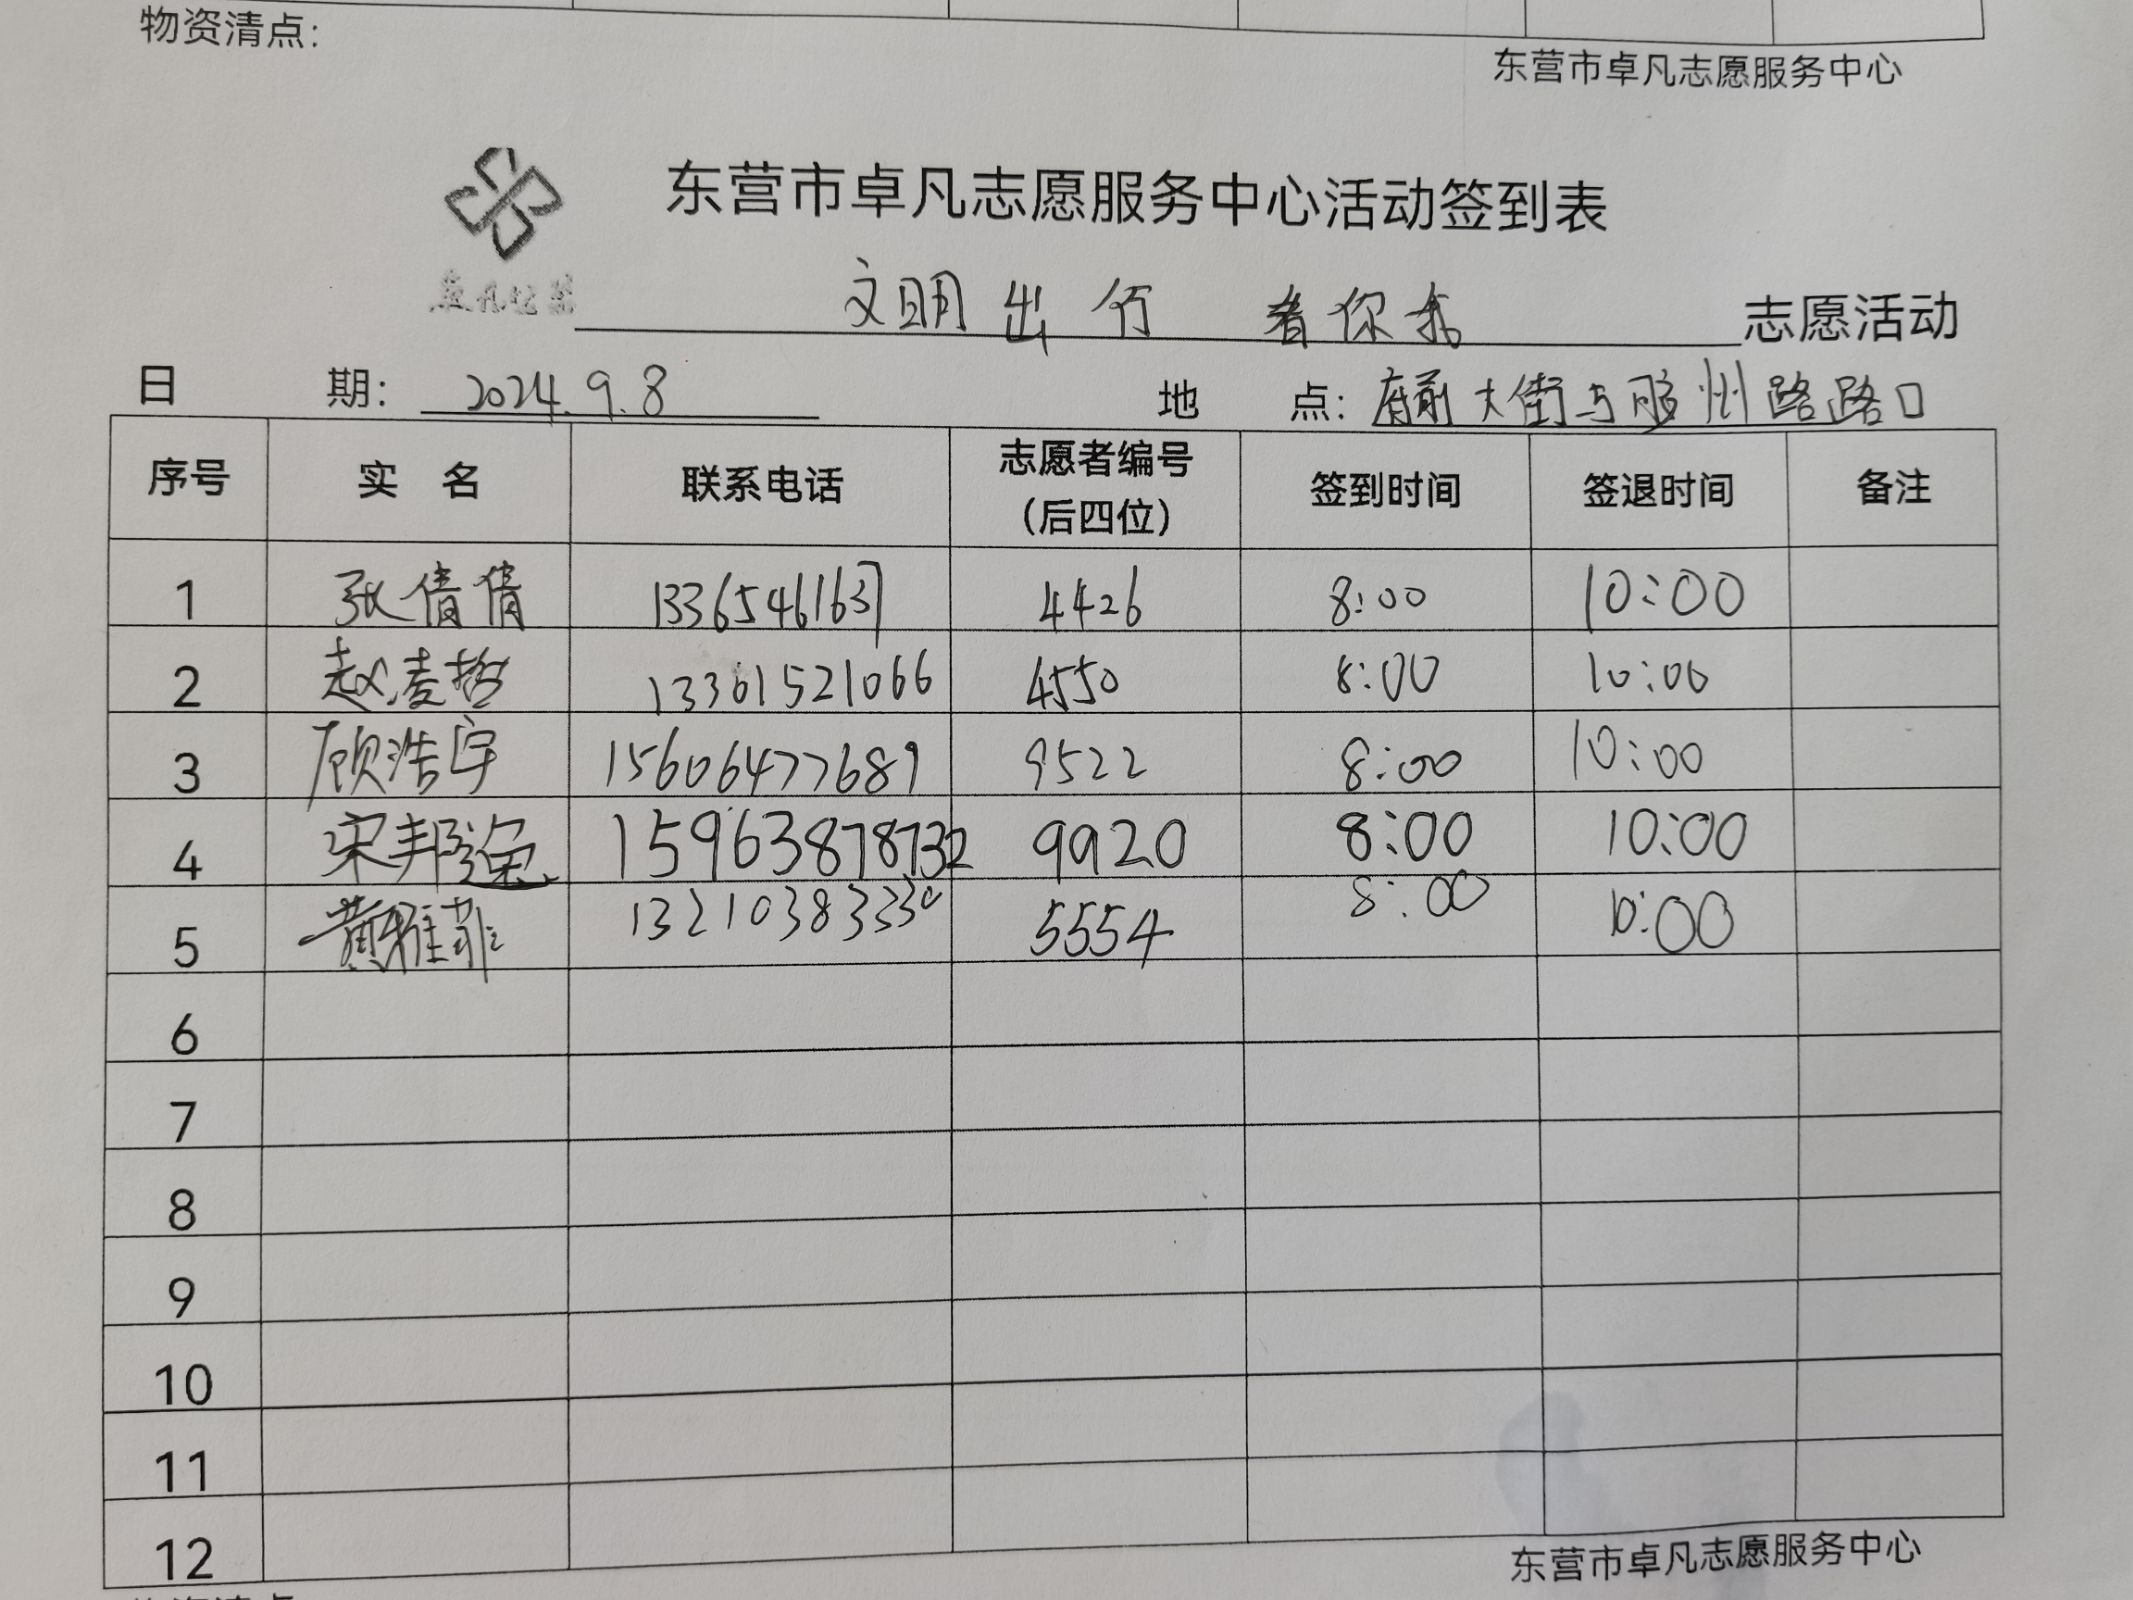 物资清点：
东营市卓凡志愿服务中心
东营市卓凡志愿服务中心活动签到表
文明出行 看你我 志愿活动
日 期： 2024.9.8 地 点：府前大街与胶州路路口
序号 实 名 联系电话 志愿者编号（后四位） 签到时间 签退时间 备注
1 张倩倩 13365461637 4426 8:00 10:00
2 赵凌哲 13361521066 4550 8:00 10:00
3 顾浩宇 15606477689 9522 8:00 10:00
4 宋邦逸 15963878732 9920 8:00 10:00
5 黄雅菲 13210383330 5554 8:00 10:00
6
7
8
9
10
11
12
东营市卓凡志愿服务中心
物资清点